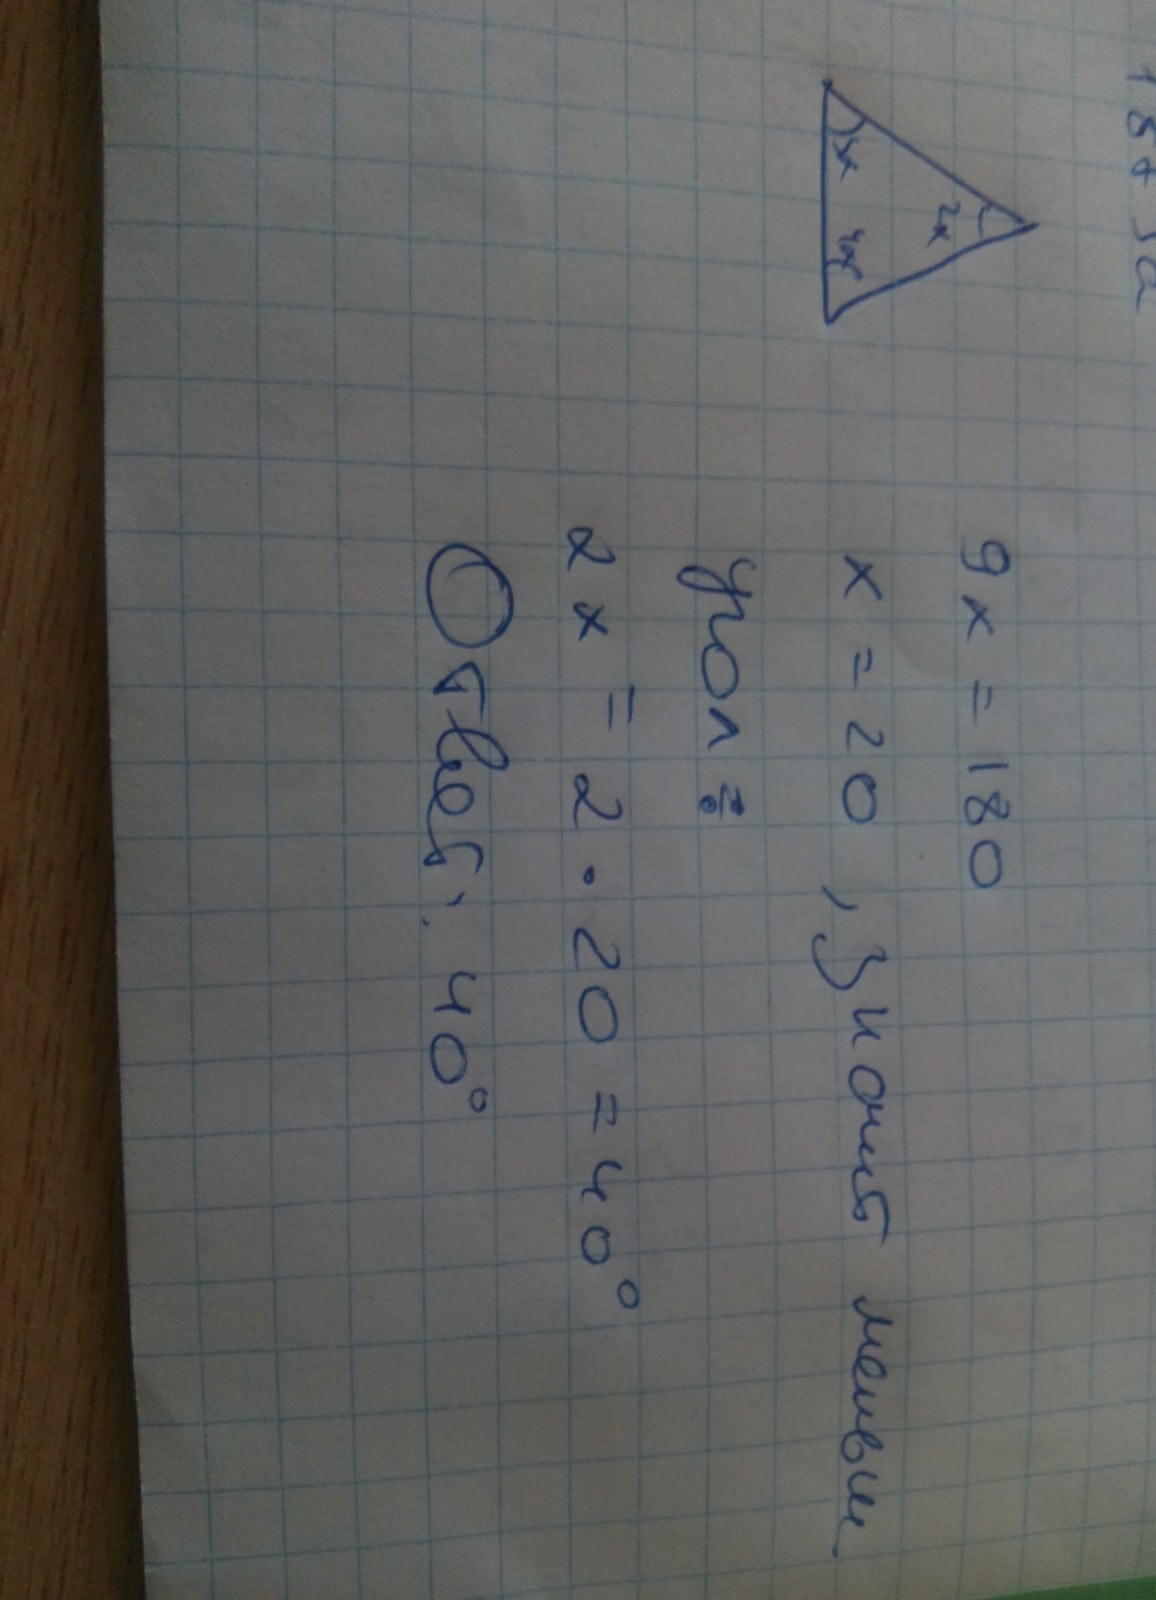 2x
3x 4x
9x = 180
x = 20, значит меньш.
угол:
2x = 2 · 20 = 40°
Ответ: 40°